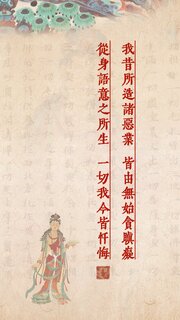 我昔所造諸惡業 皆由無始貪瞋癡
從身語意之所生 一切我今皆懺悔